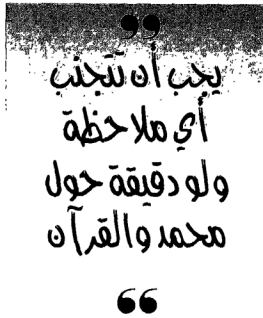 ”
يجب أن نتجنب
أي ملاحظة
ولو دقيقة حول
محمد والقرآن
“